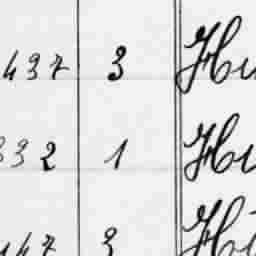 437 3 Hu
332 1 Hu
147 3 Hu